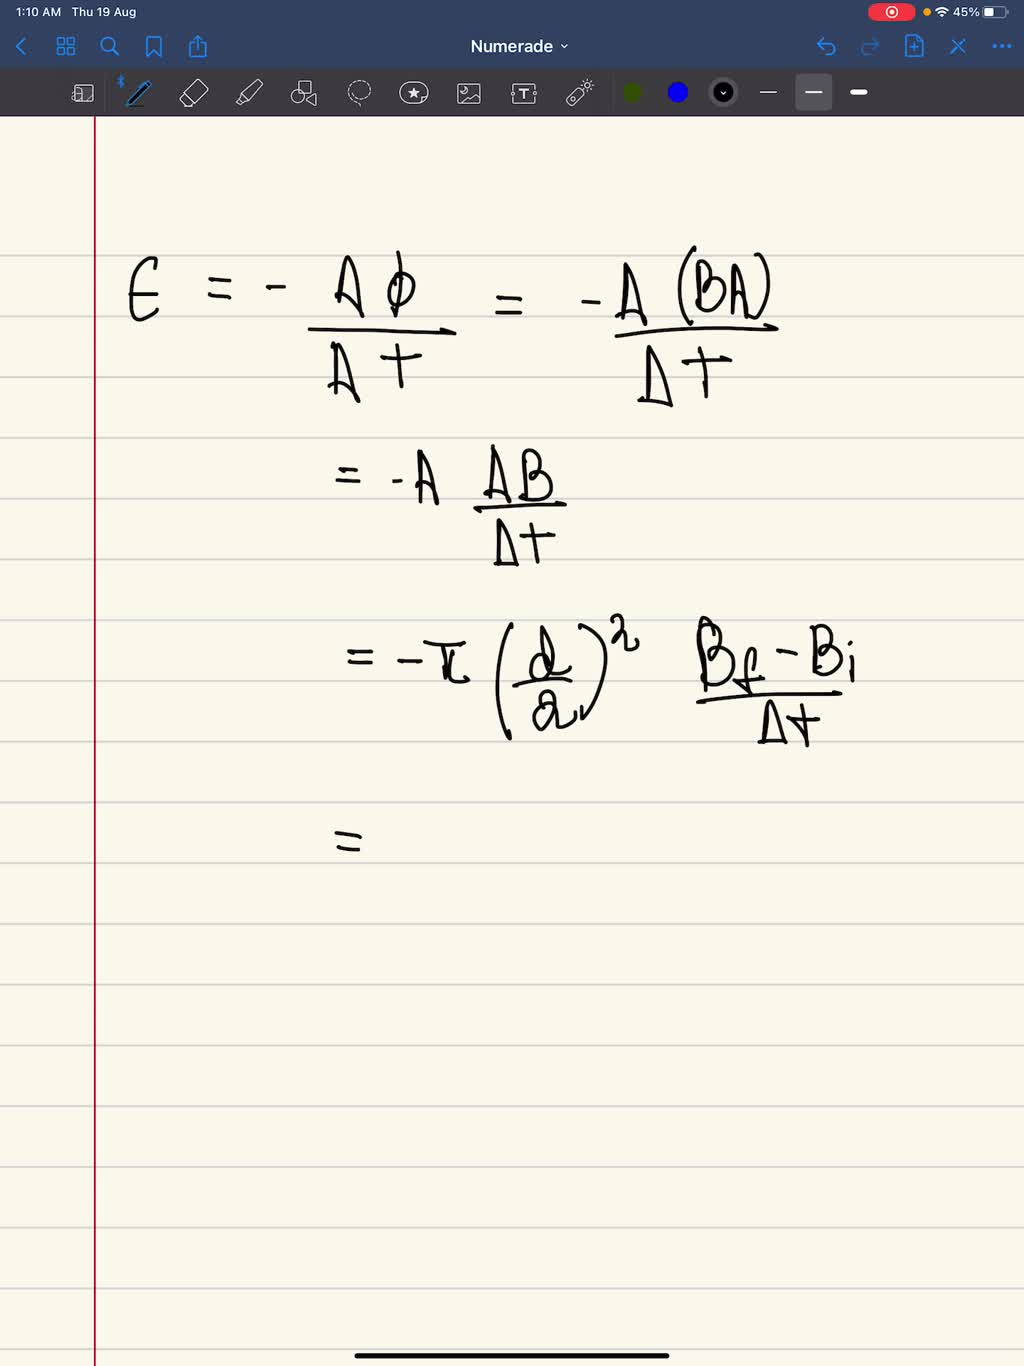 1:10 AM Thu 19 Aug 45%
Numerade
T
ε = - Δφ/Δt = - Δ(BA)/Δt
= -A ΔB/Δt
= -π (d/2)² (Bf - Bi)/Δt
=